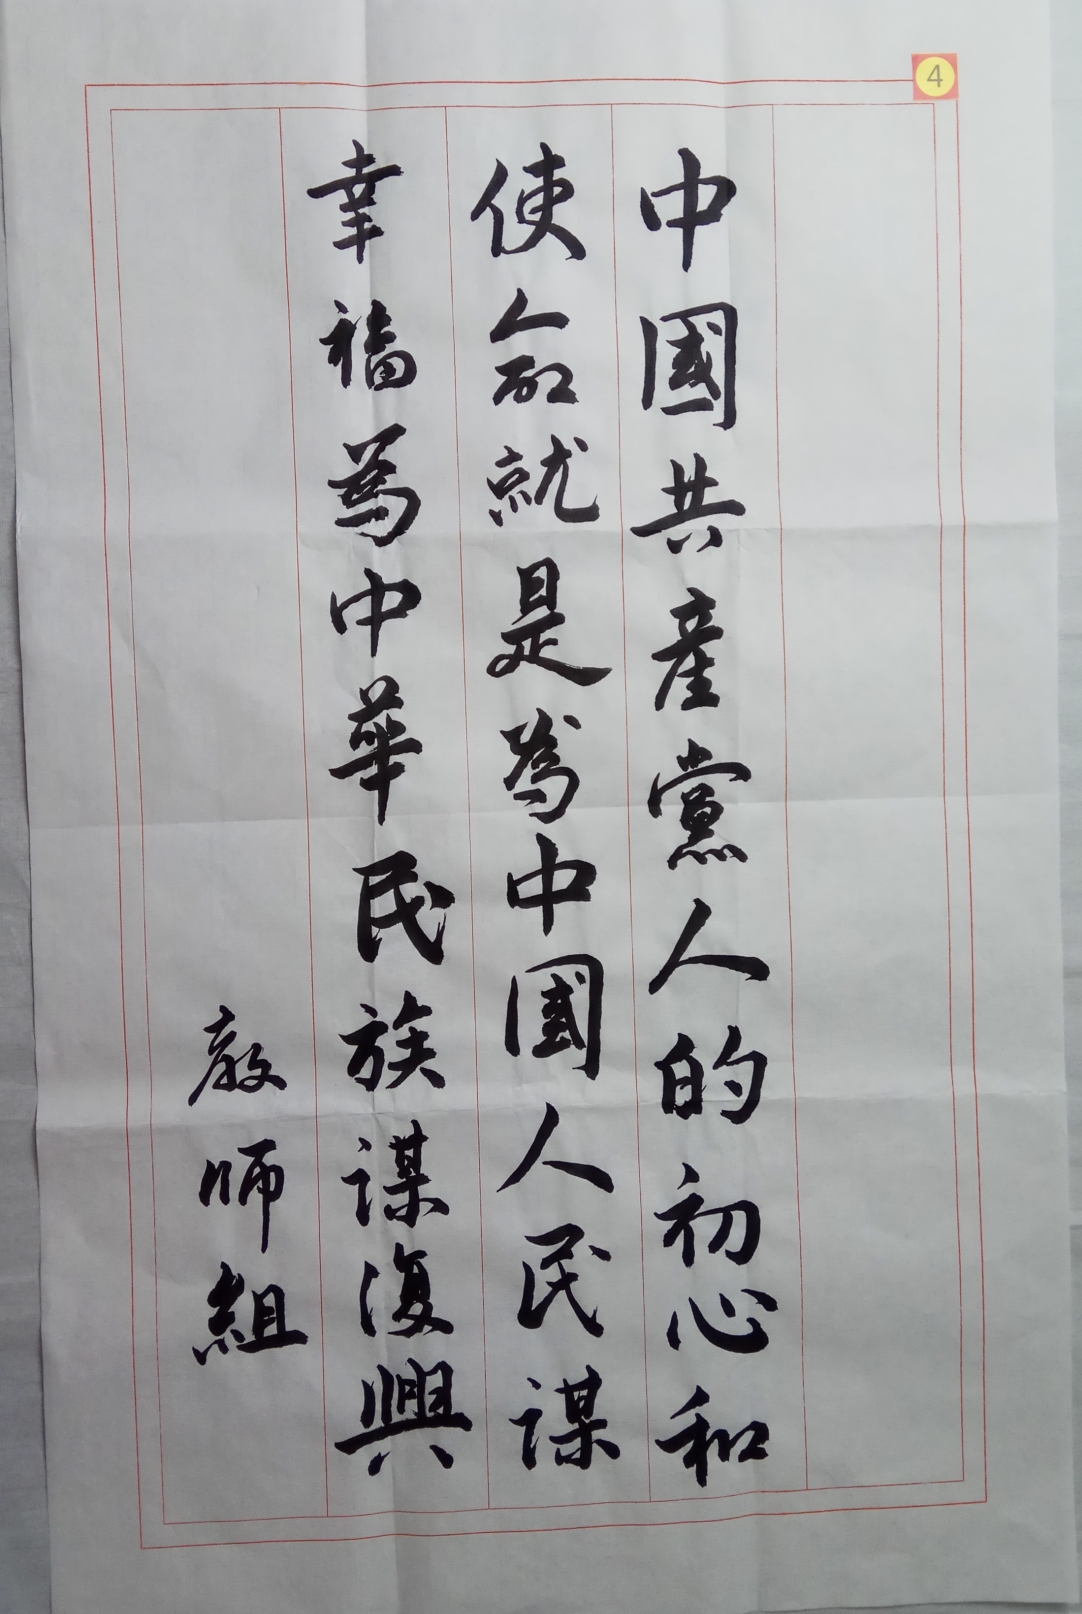 4
中國共產黨人的初心和
使命就是為中國人民謀
幸福為中華民族謀復興
教師組